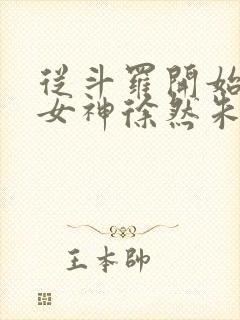 從斗羅開始
女神徐然朱
王本帥